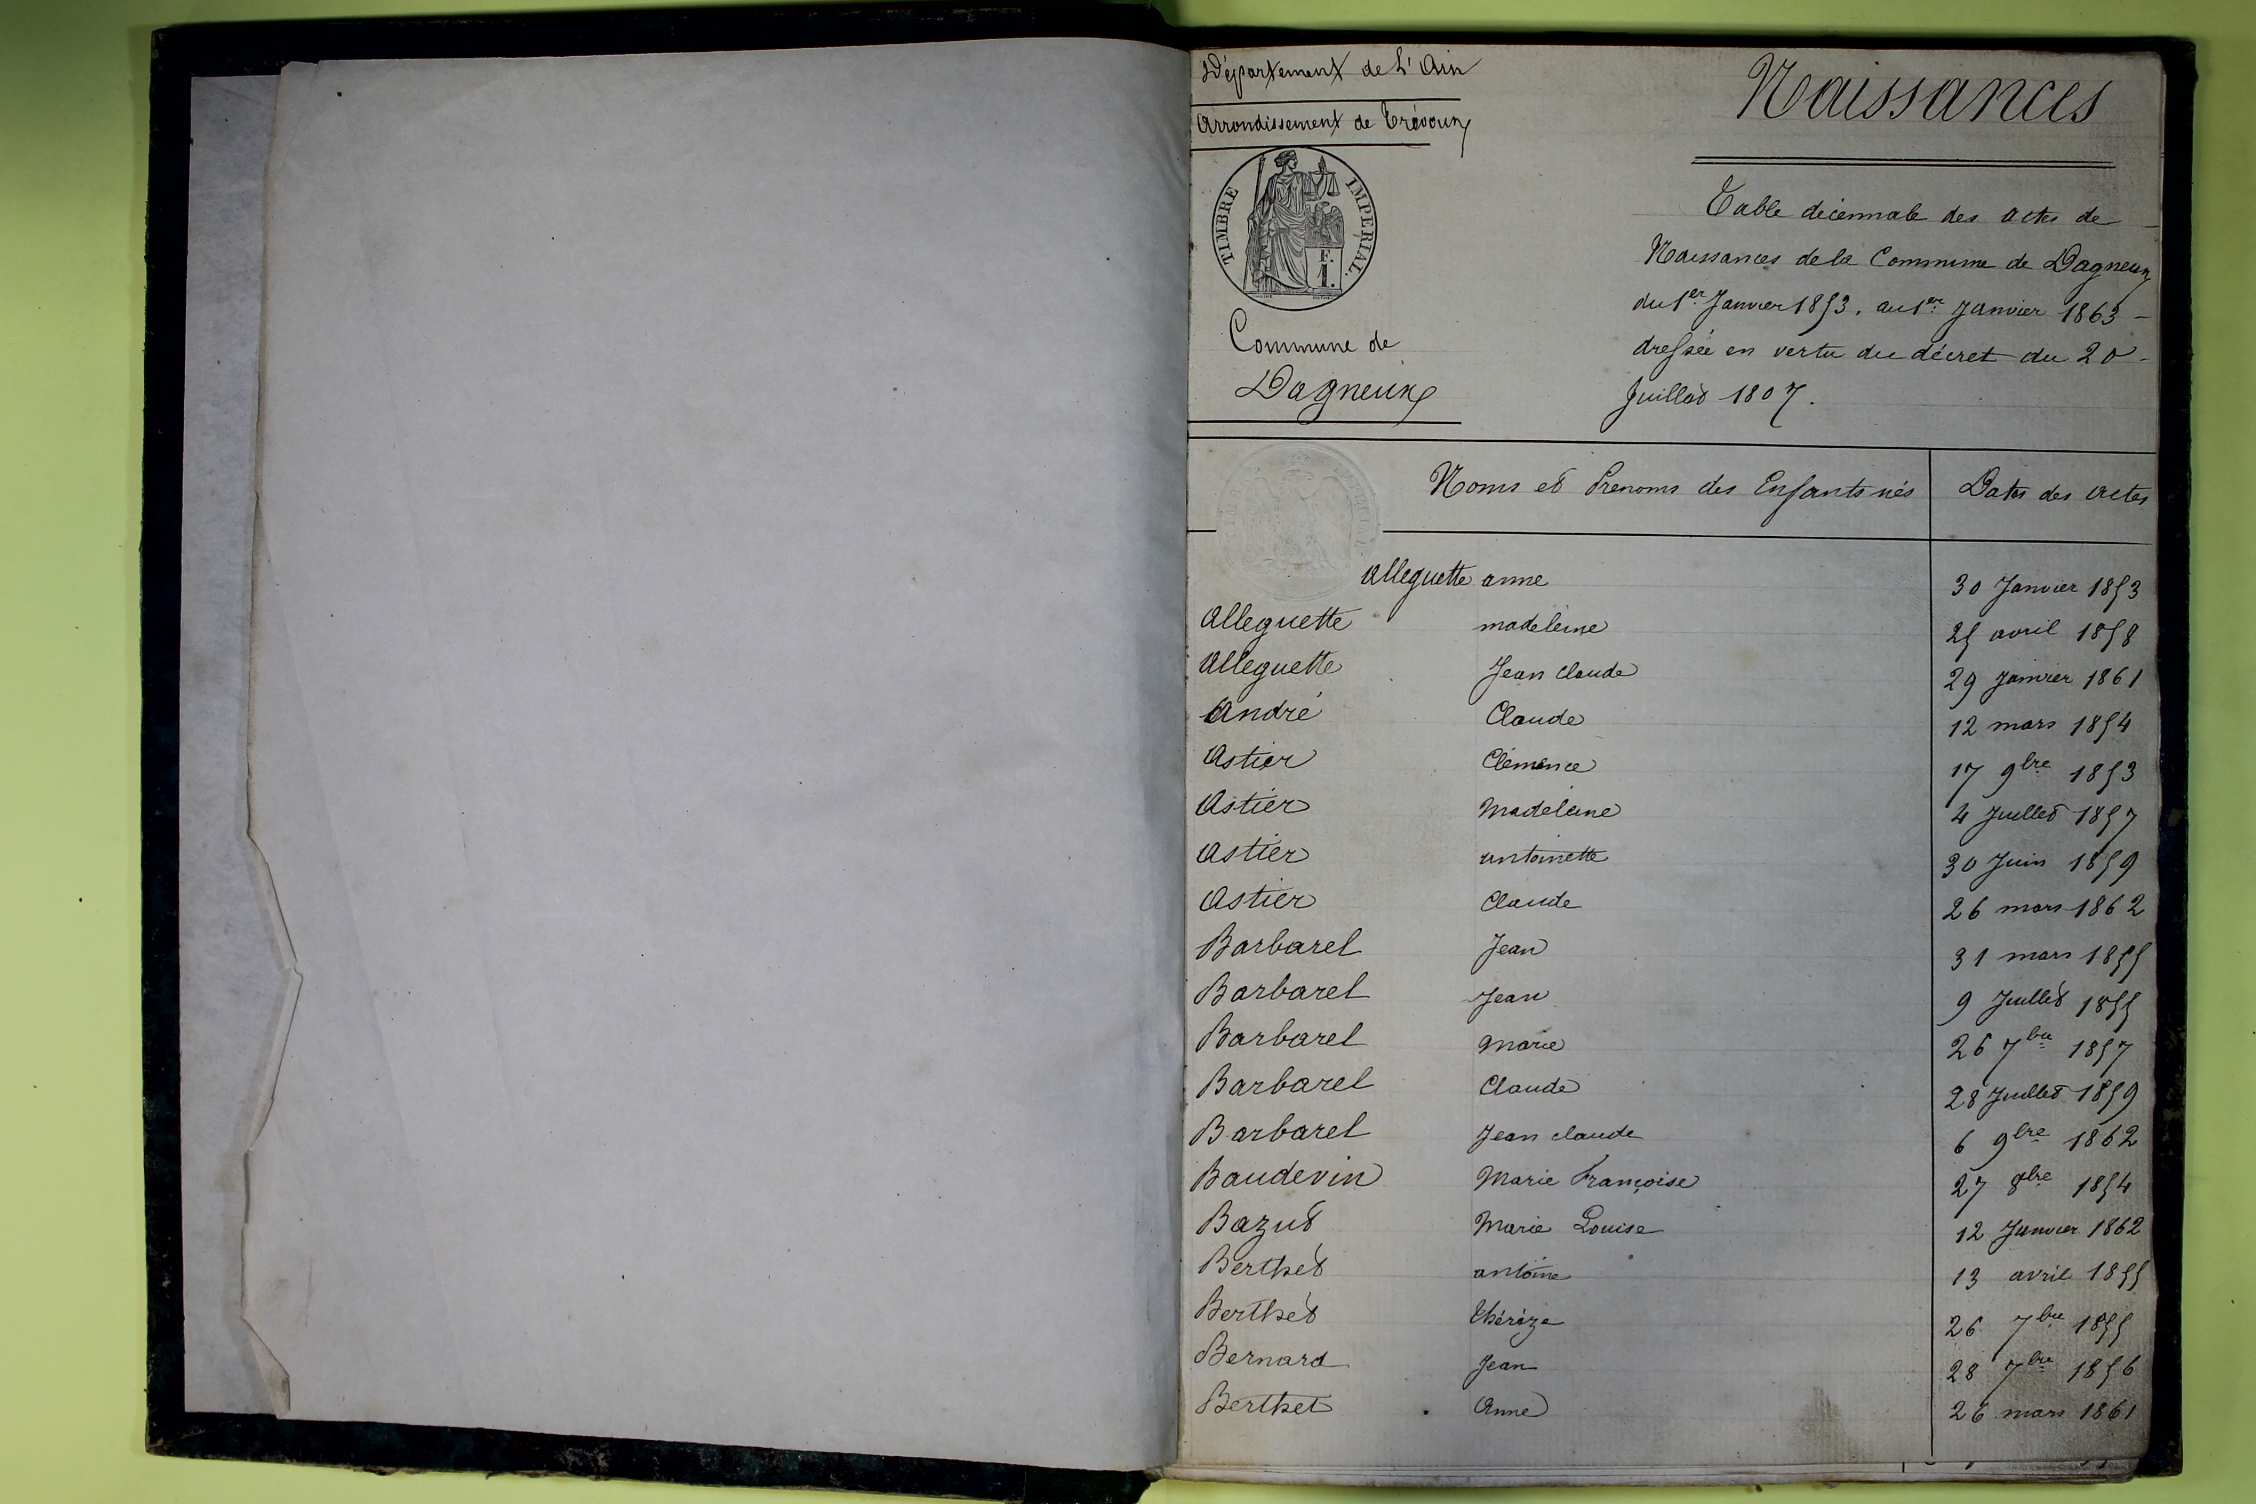 Département de l'Ain
Arrondissement de Trévoux
TIMBRE IMPERIAL.
F.
1.
Commune de
Dagneux
Naissances
Table décennale des actes de
Naissances de la Commune de Dagneux
du 1er Janvier 1853. au 1er Janvier 1863
dressée en vertu du décret du 20
Juillet 1807.
Noms et Prenoms des Enfants nés Dates des actes
Alleguette anne 30 Janvier 1853
Alleguette madeleine 25 avril 1858
Alleguette Jean Claude 29 Janvier 1861
André Claude 12 mars 1854
Astier Clémence 17 9bre 1853
Astier Madeleine 4 Juillet 1857
Astier antoinette 30 Juin 1859
Astier Claude 26 mars 1862
Barbarel Jean 31 mars 1855
Barbarel Jean 9 Juillet 1855
Barbarel Marie 26 7bre 1857
Barbarel Claude 28 Juillet 1859
Barbarel Jean claude 6 9bre 1862
Baudevin Marie Françoise 27 8bre 1854
Bazut Marie Louise 12 Janvier 1862
Berthet antoine 13 avril 1855
Berthet thérèze 26 7bre 1855
Bernard Jean 28 7bre 1856
Berthet Anne 26 mars 1861